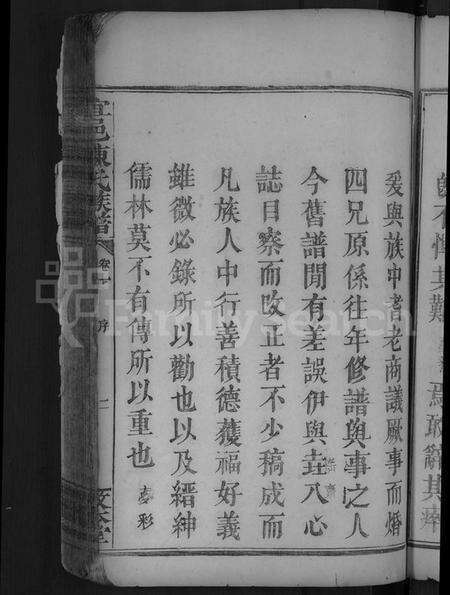 爰與族中耆老商議厥事而㛰
四兄原係往年修譜與事之人
今舊譜間有差誤伊與圭八心
誌目察而改正者不少稿成而
凡族人中行善積德獲福好義
雖微必錄所以勸也以及縉紳
儒林莫不有傳所以重也 彥彩
陳氏族譜 卷一 序 二
其難 焉敢辭其瘁
FamilySearch